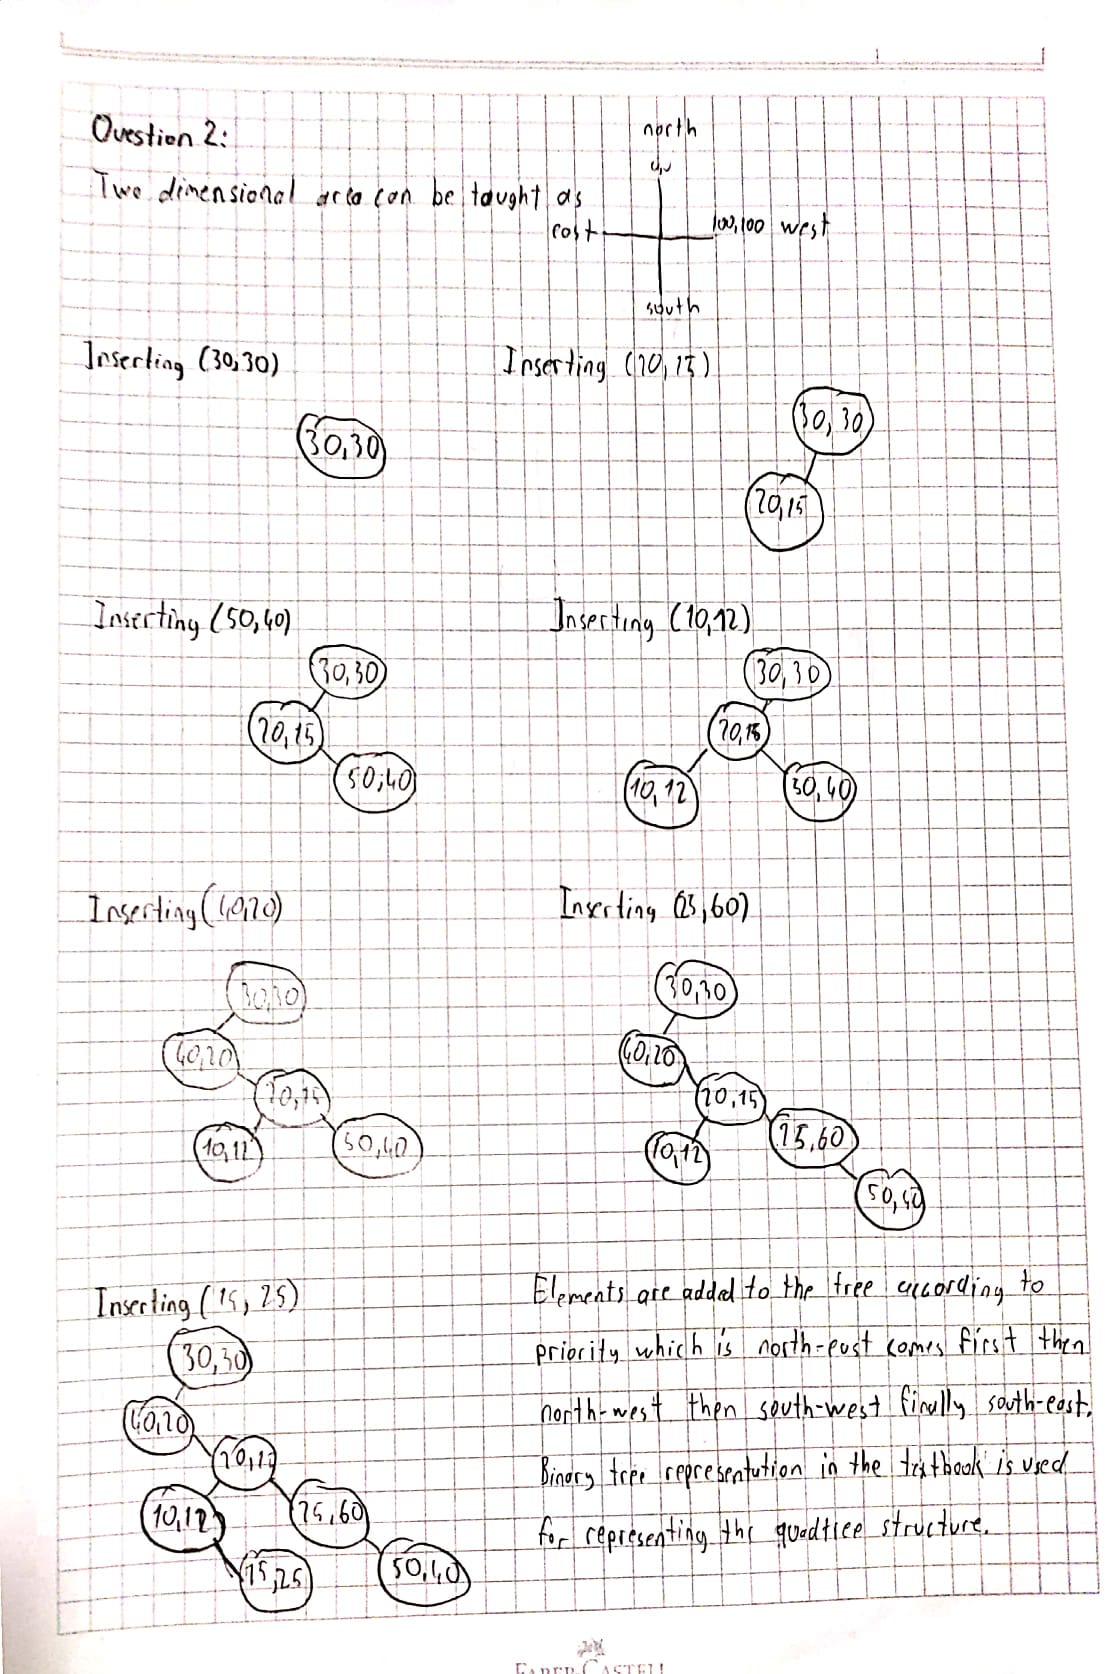 Question 2:
north
0,0
Two dimensional area can be taught as
east
100,100 west
south
Inserting (30,30)
Inserting (20,15)
30,30
30,30
20,15
Inserting (50,40)
Inserting (10,12)
30,30
20,15
50,40
30,30
20,15
10,12
50,40
Inserting (40,20)
Inserting (25,60)
30,30
40,20
20,15
10,12
50,40
30,30
40,20
20,15
10,12
25,60
50,40
Inserting (15,25)
30,30
40,20
20,15
10,12
25,60
15,25
50,40
Elements are added to the tree according to
priority which is north-east comes first then
north-west then south-west finally south-east.
Binary tree representation in the textbook is used
for representing the quadtree structure.
FABER-CASTELL